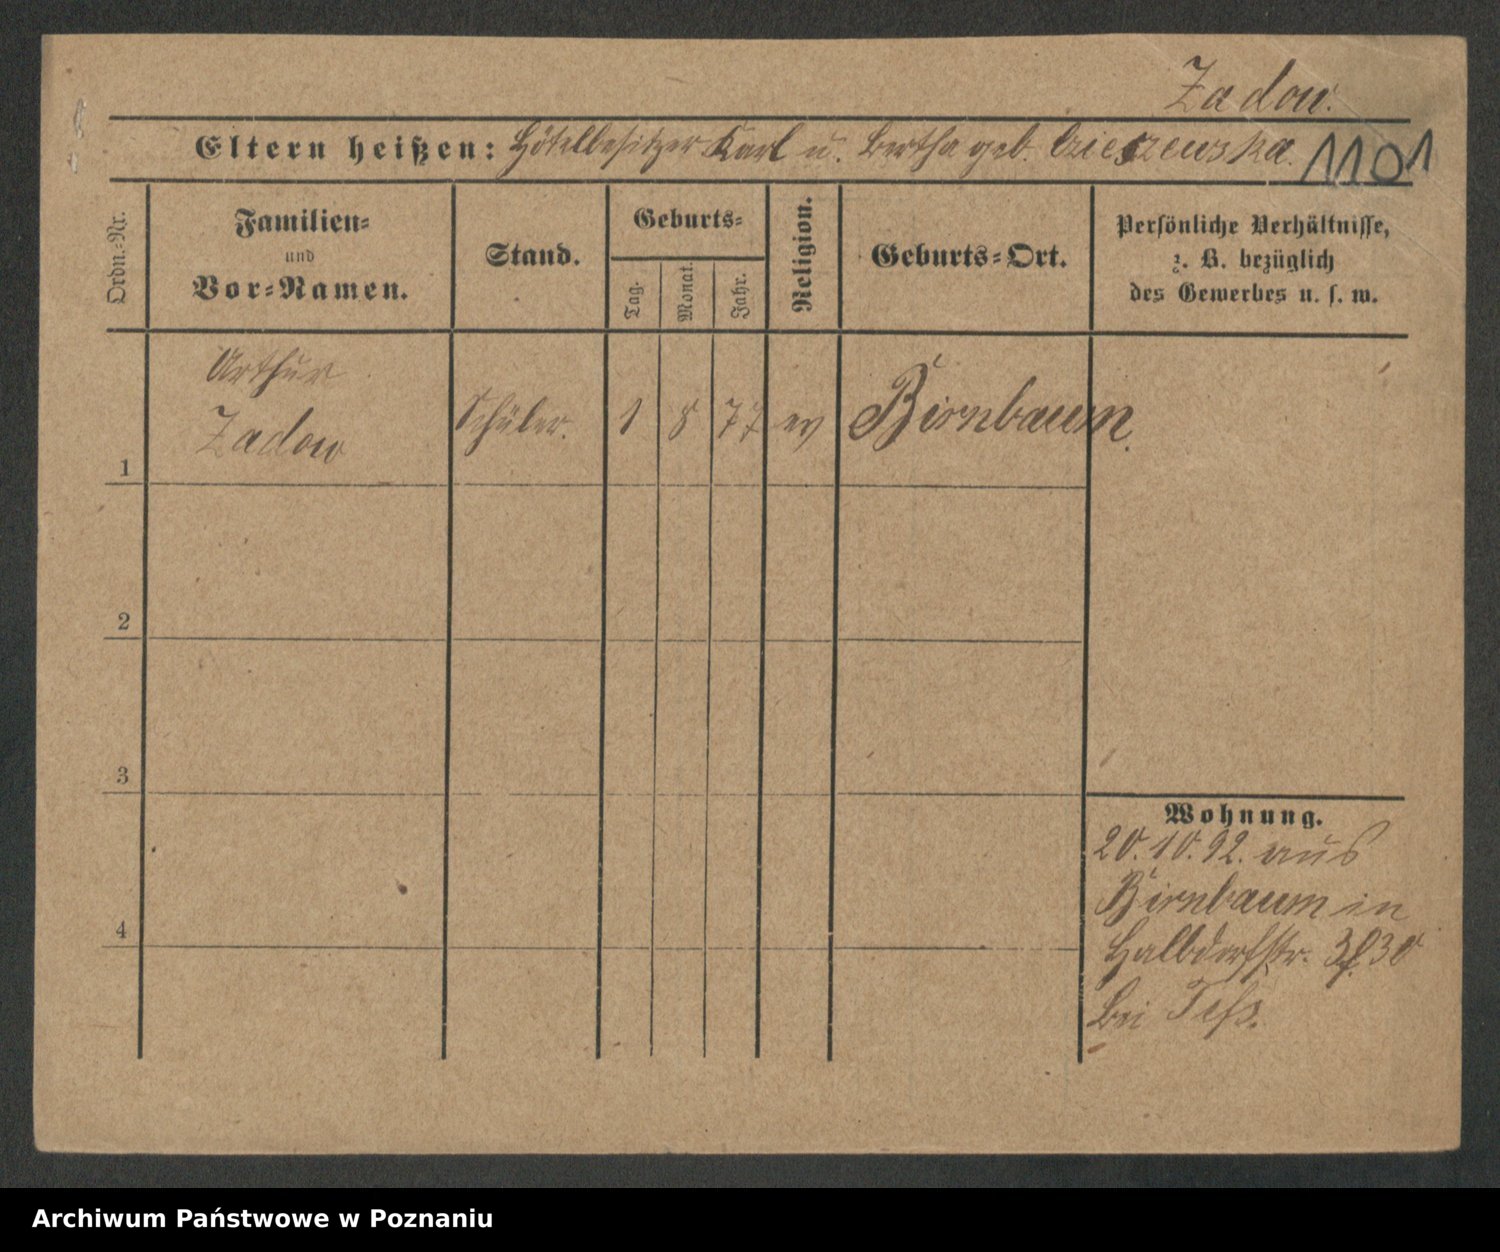 Zadow.
Eltern heißen: Hôtelbesitzer Karl u. Bertha geb.
1101
Ordn.-Nr.
Familien-
und
Vor-Namen.
Stand.
Geburts-
Tag.
Monat.
Jahr.
Religion.
Geburts-Ort.
Persönliche Verhältnisse,
z. B. bezüglich
des Gewerbes u. s. w.
Arthur
Zadow
Schüler.
1
8
77
ev
Birnbaum.
1
2
3
4
Wohnung.
20.10.92. aus
Birnbaum in
Halbdorfstr. 30
bei
Archiwum Państwowe w Poznaniu